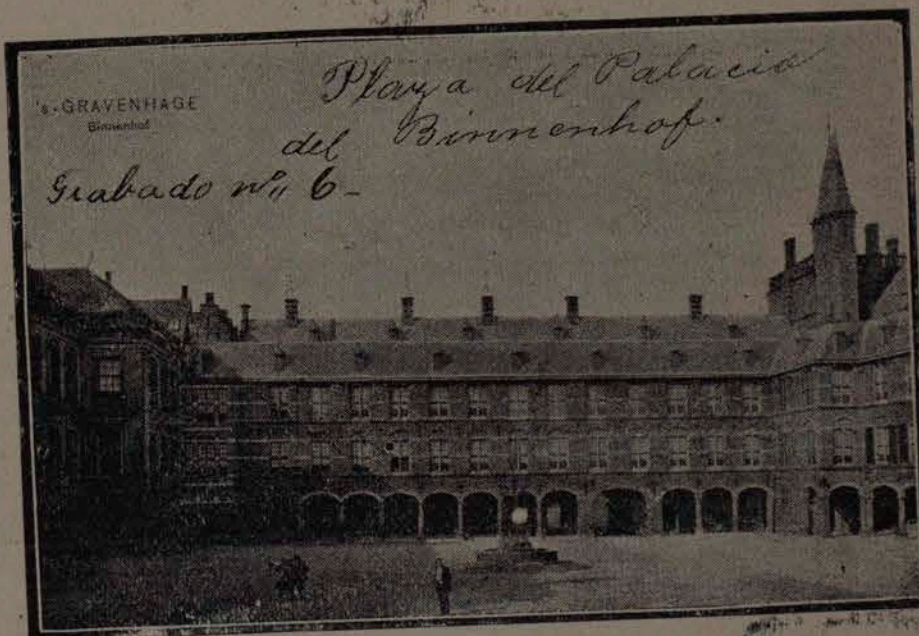 's-GRAVENHAGE
Binnenhof
Plaza del Palacio
del Binnenhof.
Grabado nº 6-